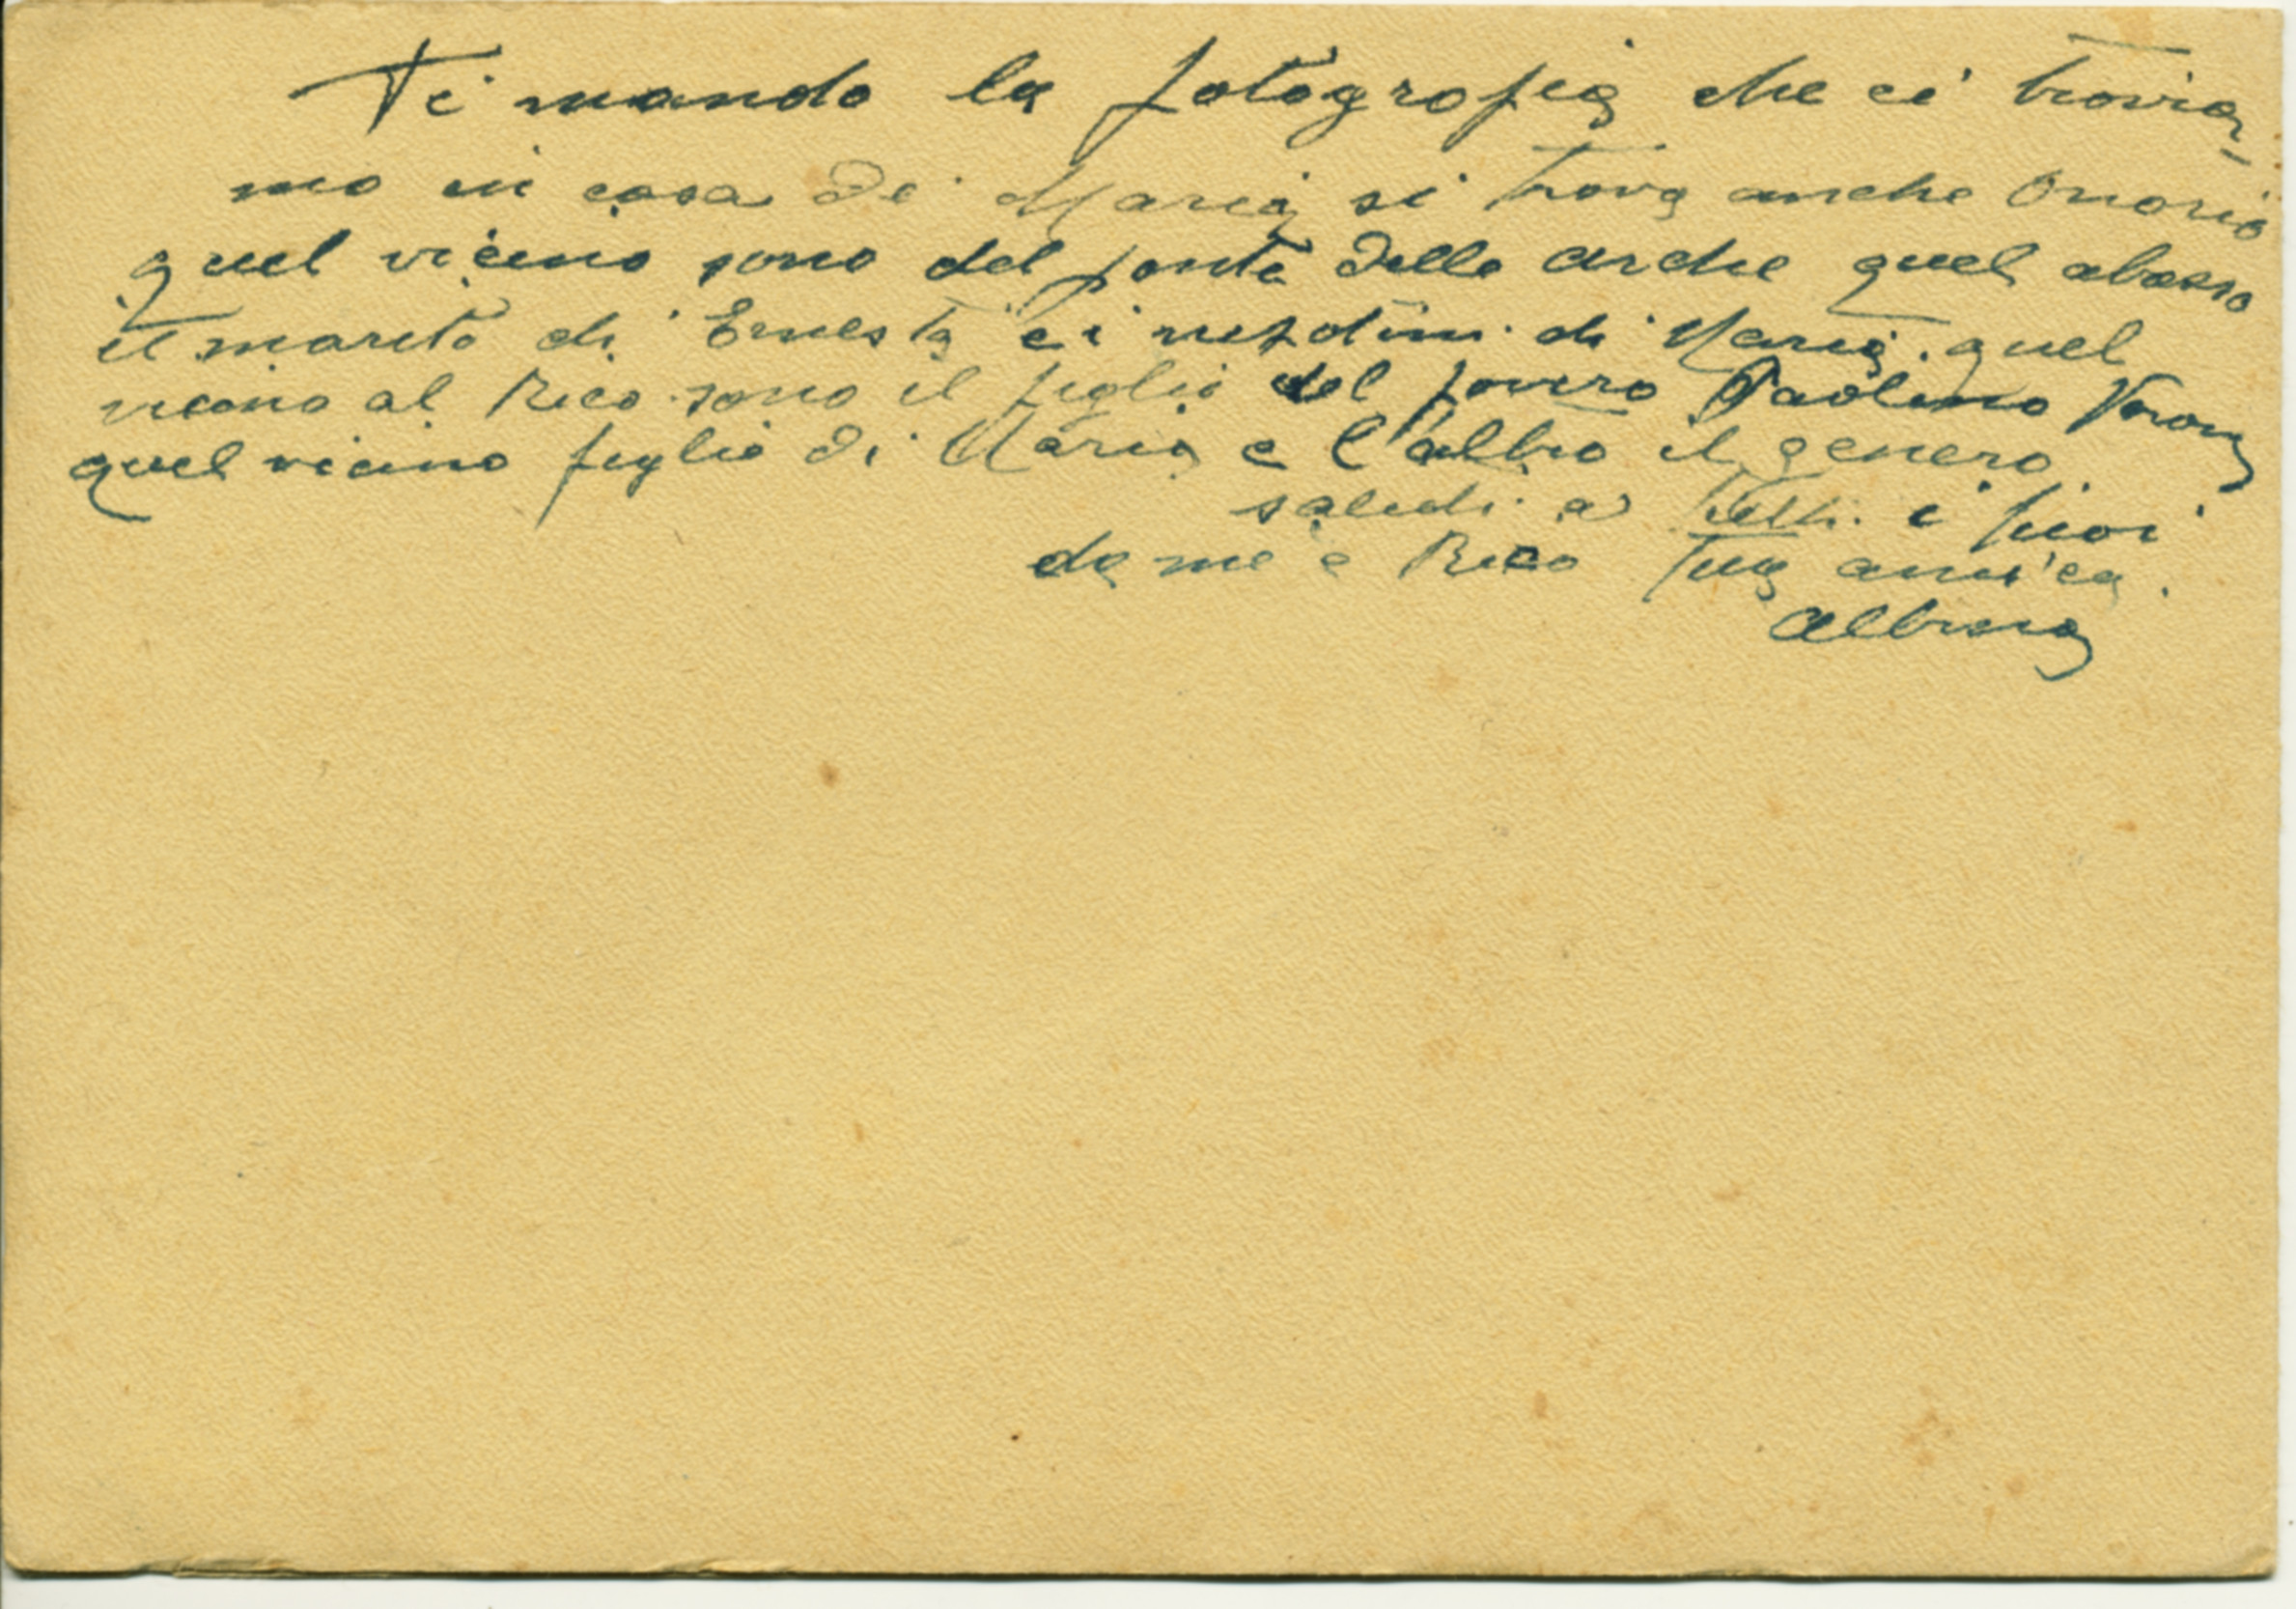 Ti mando la fotografia che ci trovia-
mo in casa di Maria si trova anche Onorio
quel vicino sono del ponte delle arche quel abasso
il marito di Ernesta ei di Maria. quel
vicino al Rico sono il figlio del povero Paolino
quel vicino figlio di Maria e l'altro il genero
saludi a tutti i tuoi
da me e Rico tua amica.
Albina